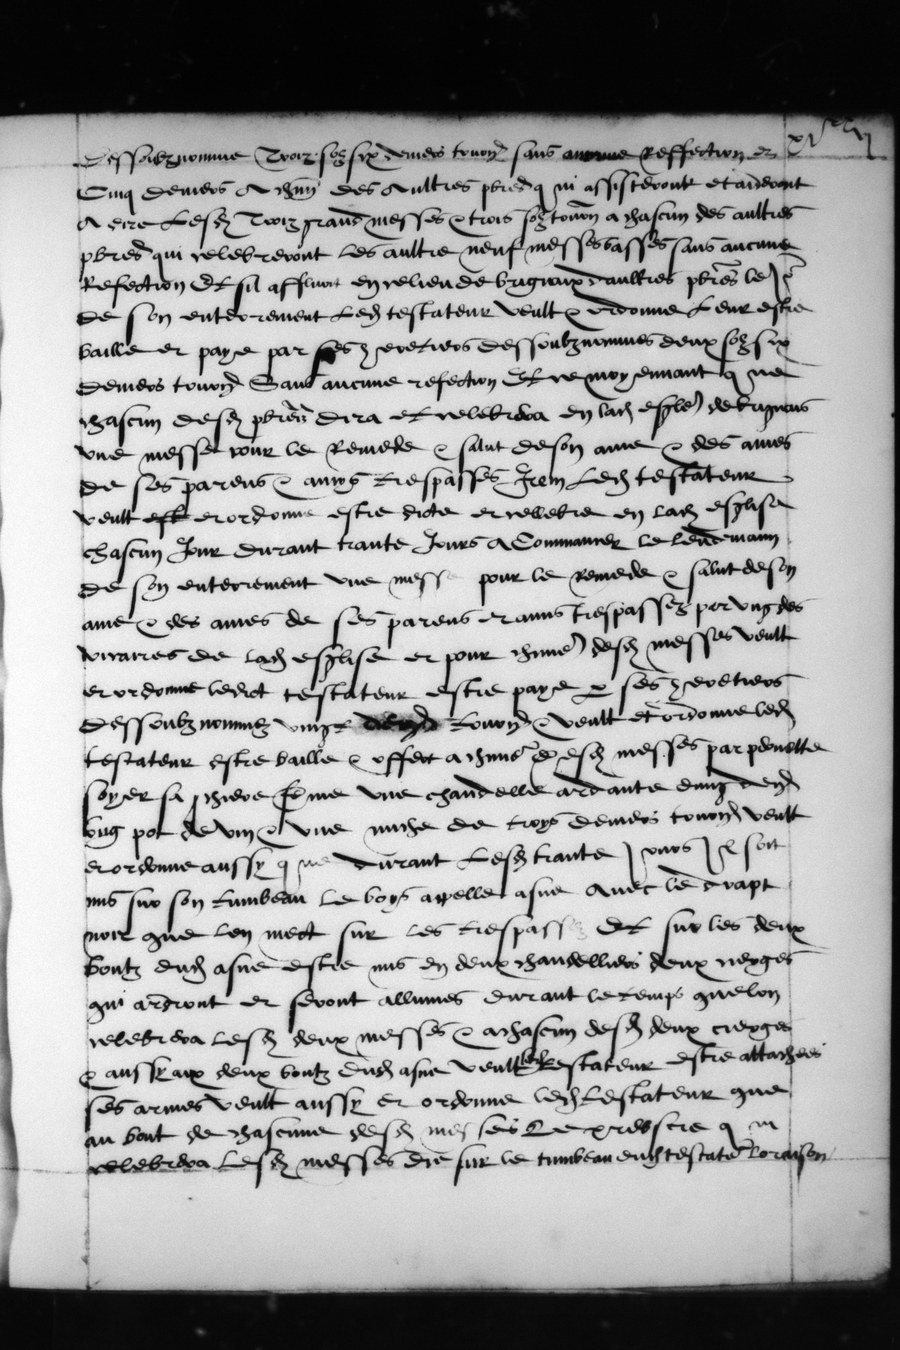 dessoubz nomme troiz solz six deniers tourn sans aucune Reffection et
Cinq deniers A chun des Aultres pbres qui assisteront et aideront
A dire Lesd Troiz grand messes & trois solz tourn a chascun des aultres
pbres qui celebreront Les aultre neuf messes basses sans aucune
Refection Et sil affluoit en lieu de daultres pbres le jr
de son enterrement Led testateur veult & ordonne Leur estre
baille et paye par ses heretiers dessoubz nommes deux solz six
deniers tourn Sans aucune refection Et ce moyennant que
chascun desd pbres dira et celebrera en lad esgle de
vne messe pour le Remede & salut de son ame & des ames
de ses parens & amys trespasses Item Led testateur
veult et ordonne estre dicte et cellebre en Lad esglise
chascun Jour durant trante Jours A Commancer le lendemain
de son enterrement vne messe pour le Remede & salut de son
ame & des ames de ses parens et amis trespassez par vng des
vicaires de Lad esglise et pour chune desd messes veult
et ordonne ledict testateur estre paye par ses heretiers
dessoubz nommez vingt deniers tourn & veult et ordonne led
testateur estre baille & offert a chune desd messes par
soy et sa femme vne chandelle ardante dung denier
vng pot de vin & vne miche de troys deniers tourn veult
et ordonne aussy que durant Lesd trante jours il soit
mis sur son tumbeau Le boys appelle asne Avec le drapt
noir que Len mect sur les trespasses Et sur les deux
boutz dud asne estre mis en deux chandelliers deux cierges
qui ardront et seront allumes durant le temps que lon
celebrera Lesd deux messes & a chascun desd deux cierges
& aussy aux deux boutz dud asne veult led testateur estre attachees
ses armes veult aussy et ordonne led testateur que
au bout de chascune desd messes Le prebstre qui
celebrera Lesd messes die sur le tumbeau dud testate Loraison